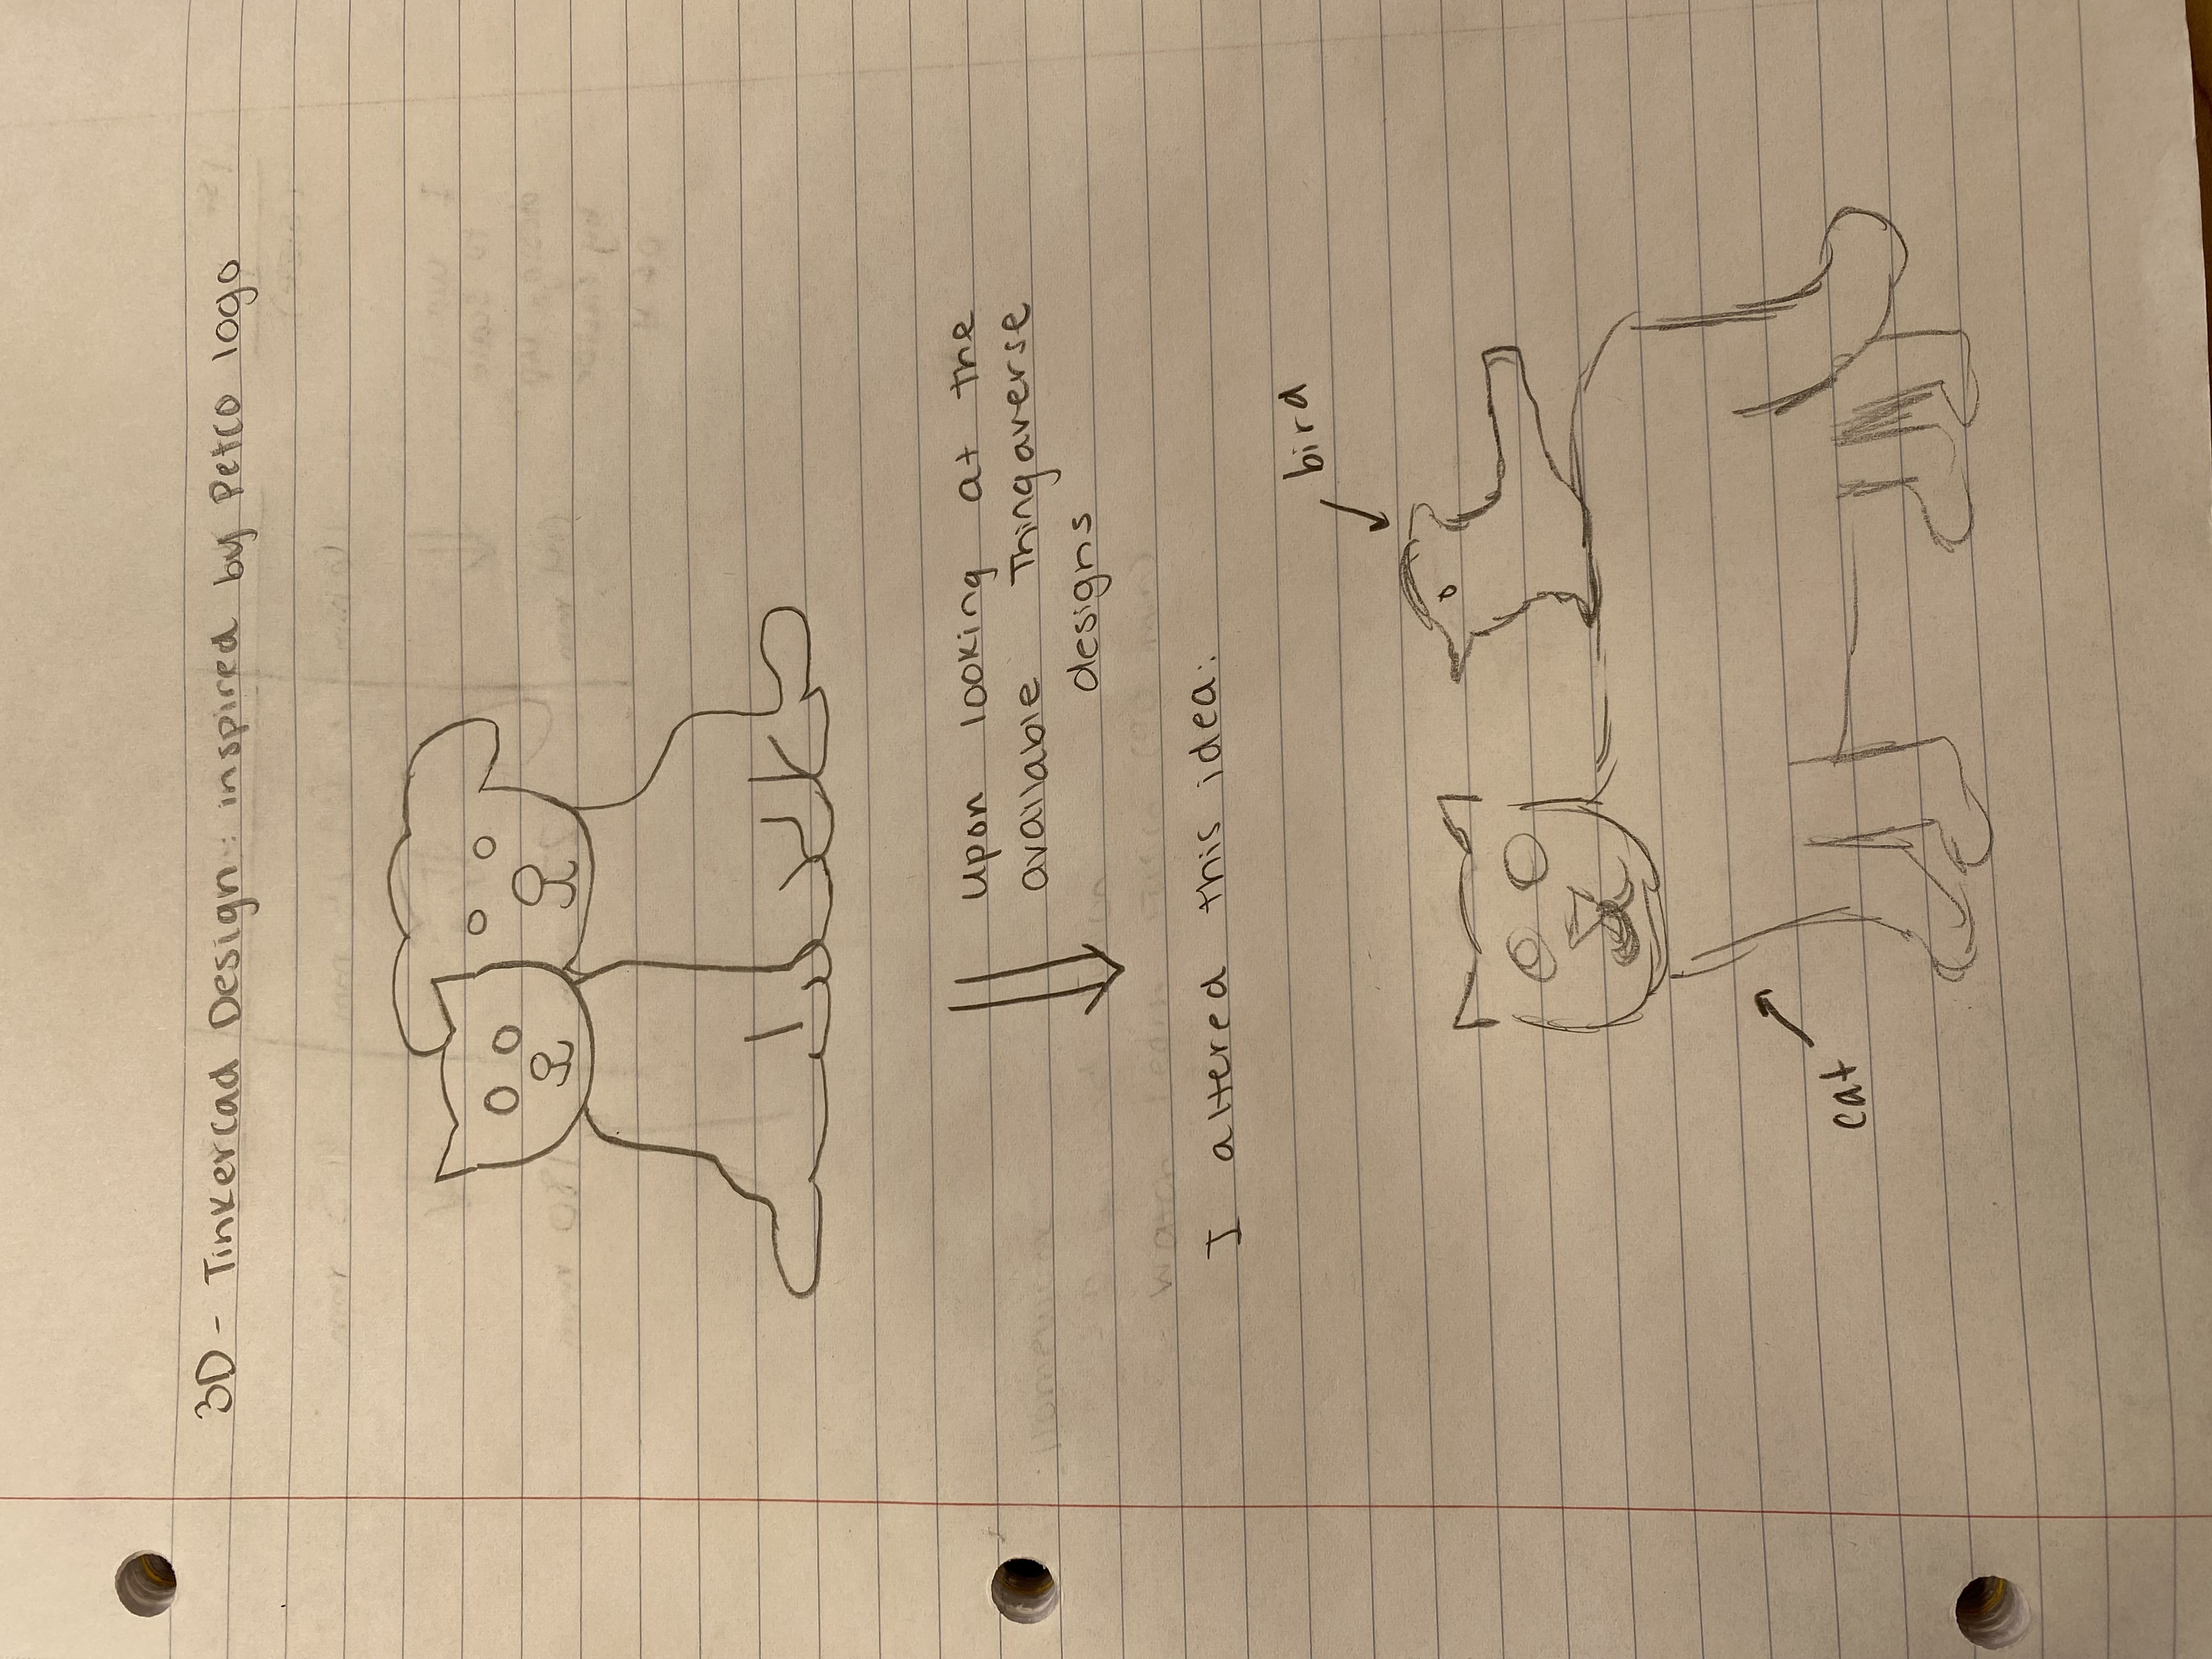 3D - Tinkercad Design: inspired by Petco logo
Upon looking at the
available Thingaverse
designs
I altered this idea:
bird
cat